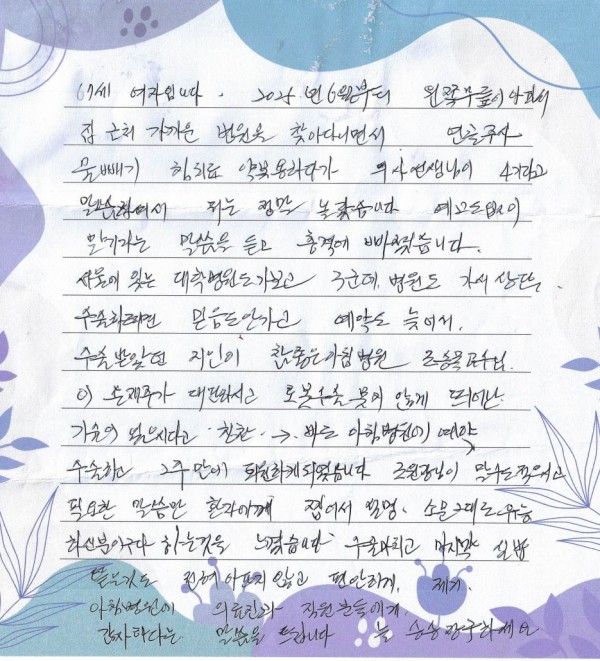 67세 여자입니다. 2025년 6월부터 왼쪽무릎이 아파서
집 근처 가까운 병원을 찾아다니면서 연골주사
물빼기 침치료 약복용하다가 의사선생님이 4기라고
말씀하셔서 저는 정말 놀랐습니다 예고도없이
말기라는 말씀을 듣고 충격에 빠졌습니다.
서울에 있는 대학병원도가보고 3군데, 병원도 가서 상담,
수술하려면 믿음도안가고 예약도 늦어서,
수술받았던 지인이 참좋은아침병원 교수님
이 손재주가 대단하시고 로봇수술 못지 않게 뛰어난
기술이 있으시다고 칭찬 → 바로 아침병원에 예약
수술하고 2주만에 퇴원하게되었습니다 조원장님이 말수도적으시고
필요한 말씀만 환자에게 찝어서 설명, 소문그대로 유능
하신분이구나 하는것을 느꼈습니다 수술마치고 마지막 실밥
뽑는것도 전혀 아프지 않고 편안하게, 제거.
아침병원에 의료진과 직원분들에게,
감사하다는 말씀을 드립니다 늘 승승장구하세요